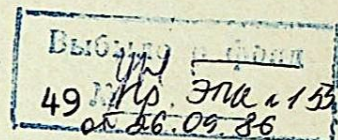 Выбыло о фонд
49 № Пр. ЭПК № 155
от 26.09.86